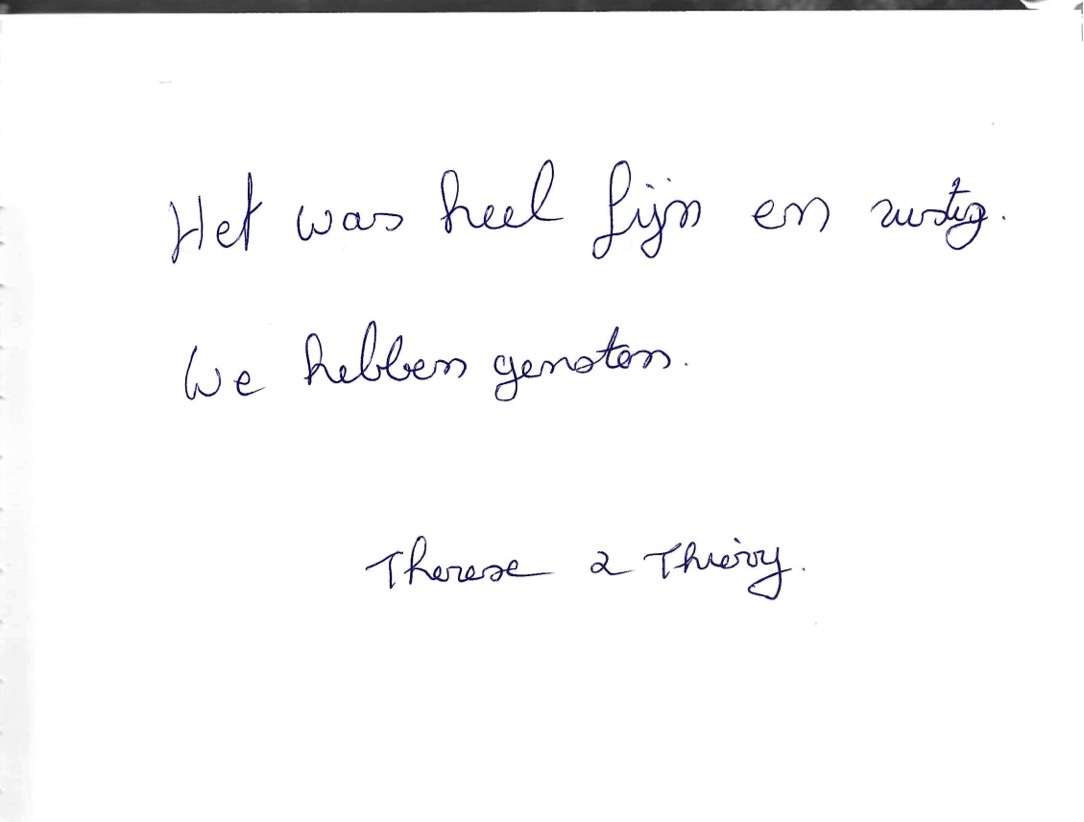 Het was heel fijn en rustig.
We hebben genoten.
Therese & Thierry.